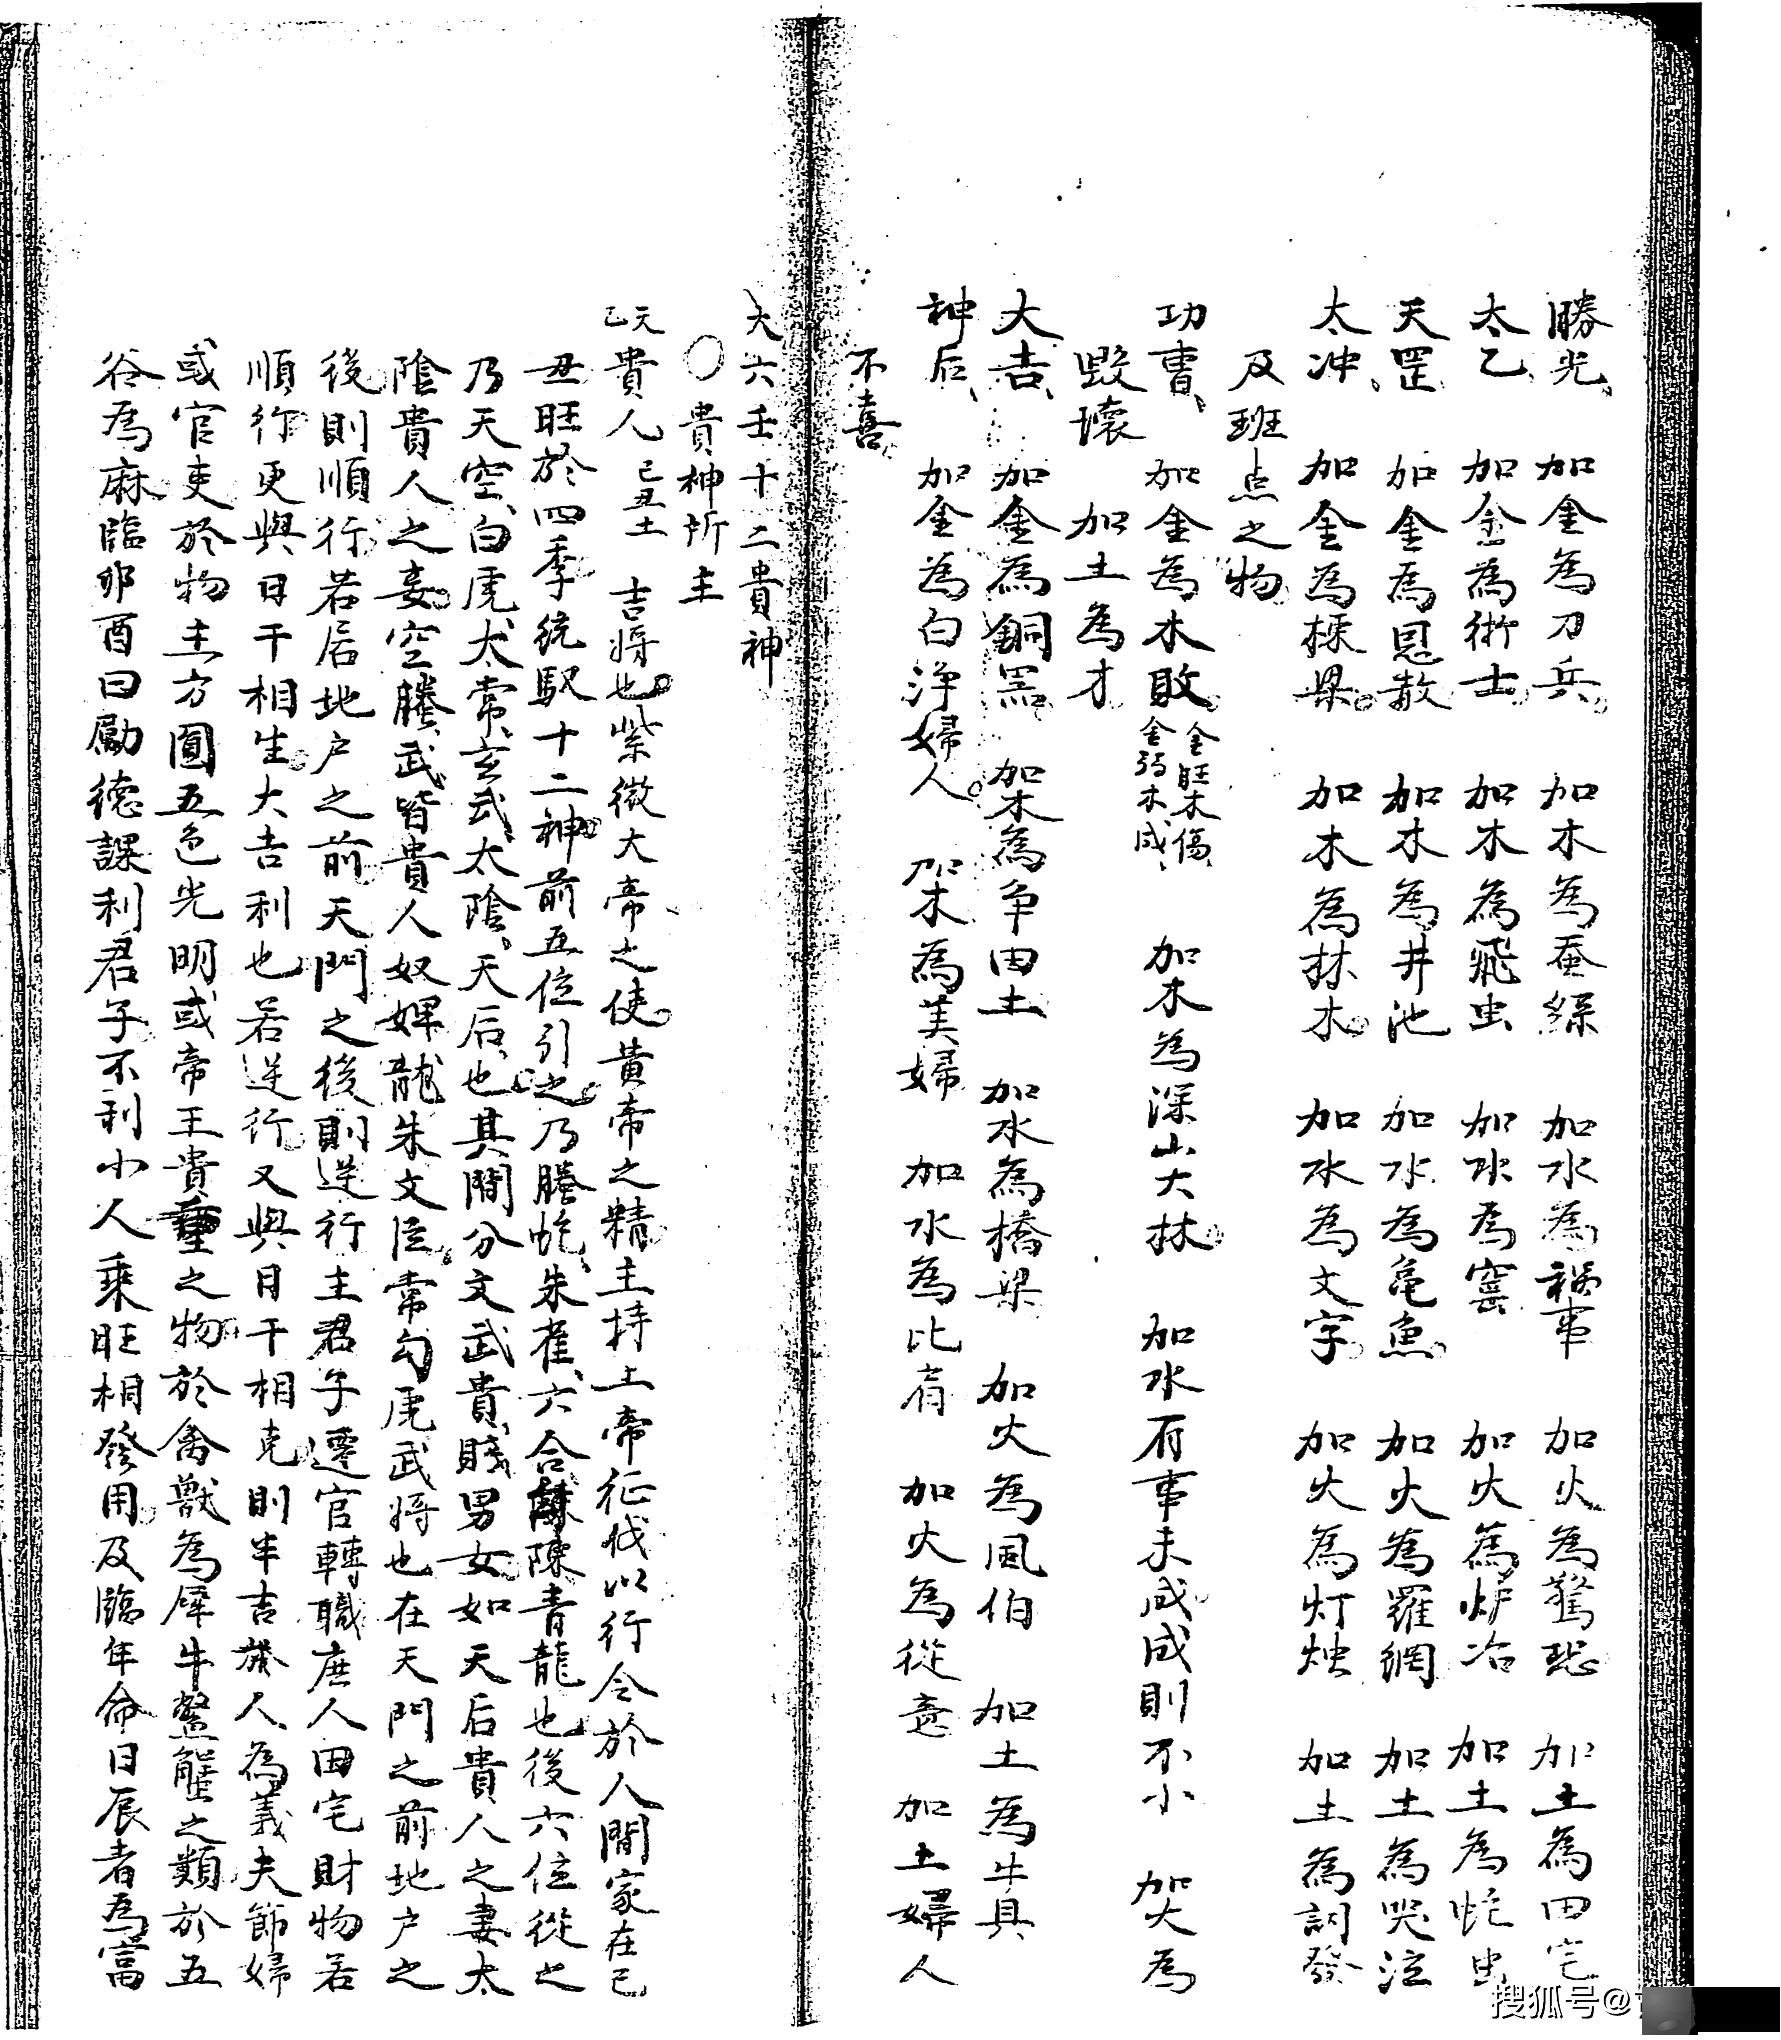 勝光、加金為刀兵。加木為蚕絲 加水為禍事 加火為驚恐 加土為田宅
太乙 加金為術士 加木為飛虫 加水為窰 加火為炉冶 加土為蛇虫
天罡、加金為恩赦 加木為井池 加水為黽魚。加火為羅網 加土為哭泣
太冲、加金為棟梁。加木為林木。加水為文字 加火為灯烛 加土為詞發
及班点之物
功曹、加金為木敗。金旺木傷、金弱木成、 加木為深山大林 加水有事未成成則不小 加火為
毀壞 加土為才
大吉、加金為銅器 加木為争田土 加水為橋梁 加火為風伯 加土為牛具
神后、加金為白浄婦人。加木為美婦 加水為比肩 加火為從意 加土婦人
不喜。
大六壬十二貴神
○貴神所主
天乙貴人 己丑土 吉将也紫微大帝之使。黄帝之精主持上帝征伐以行令於人間家在己
丑旺於四季統馭十二神前五位引之乃螣蛇、朱雀、六合陳青龍也後六位從之
乃天空、白虎、太常、玄武、太陰、天后、也其間分文武貴、賤男女如天后貴人之妻太
陰貴人之妾空螣、武、皆貴人奴婢龍朱文臣常勾虎武将也在天門之前地户之
後則順行若居地户之前天門之後則逆行主君子遷官轉職庶人田宅財物若
順行更與日干相生大吉利也若逆行又與日干相克則半吉於人為義夫節婦
或官吏於物主方圓五色光明或帝王貴重之物於禽獸為犀牛鱉蟹之類於五
谷為麻臨卯酉曰勵德課利君子不利小人乘旺相發用及臨年命日辰者為富
搜狐号@